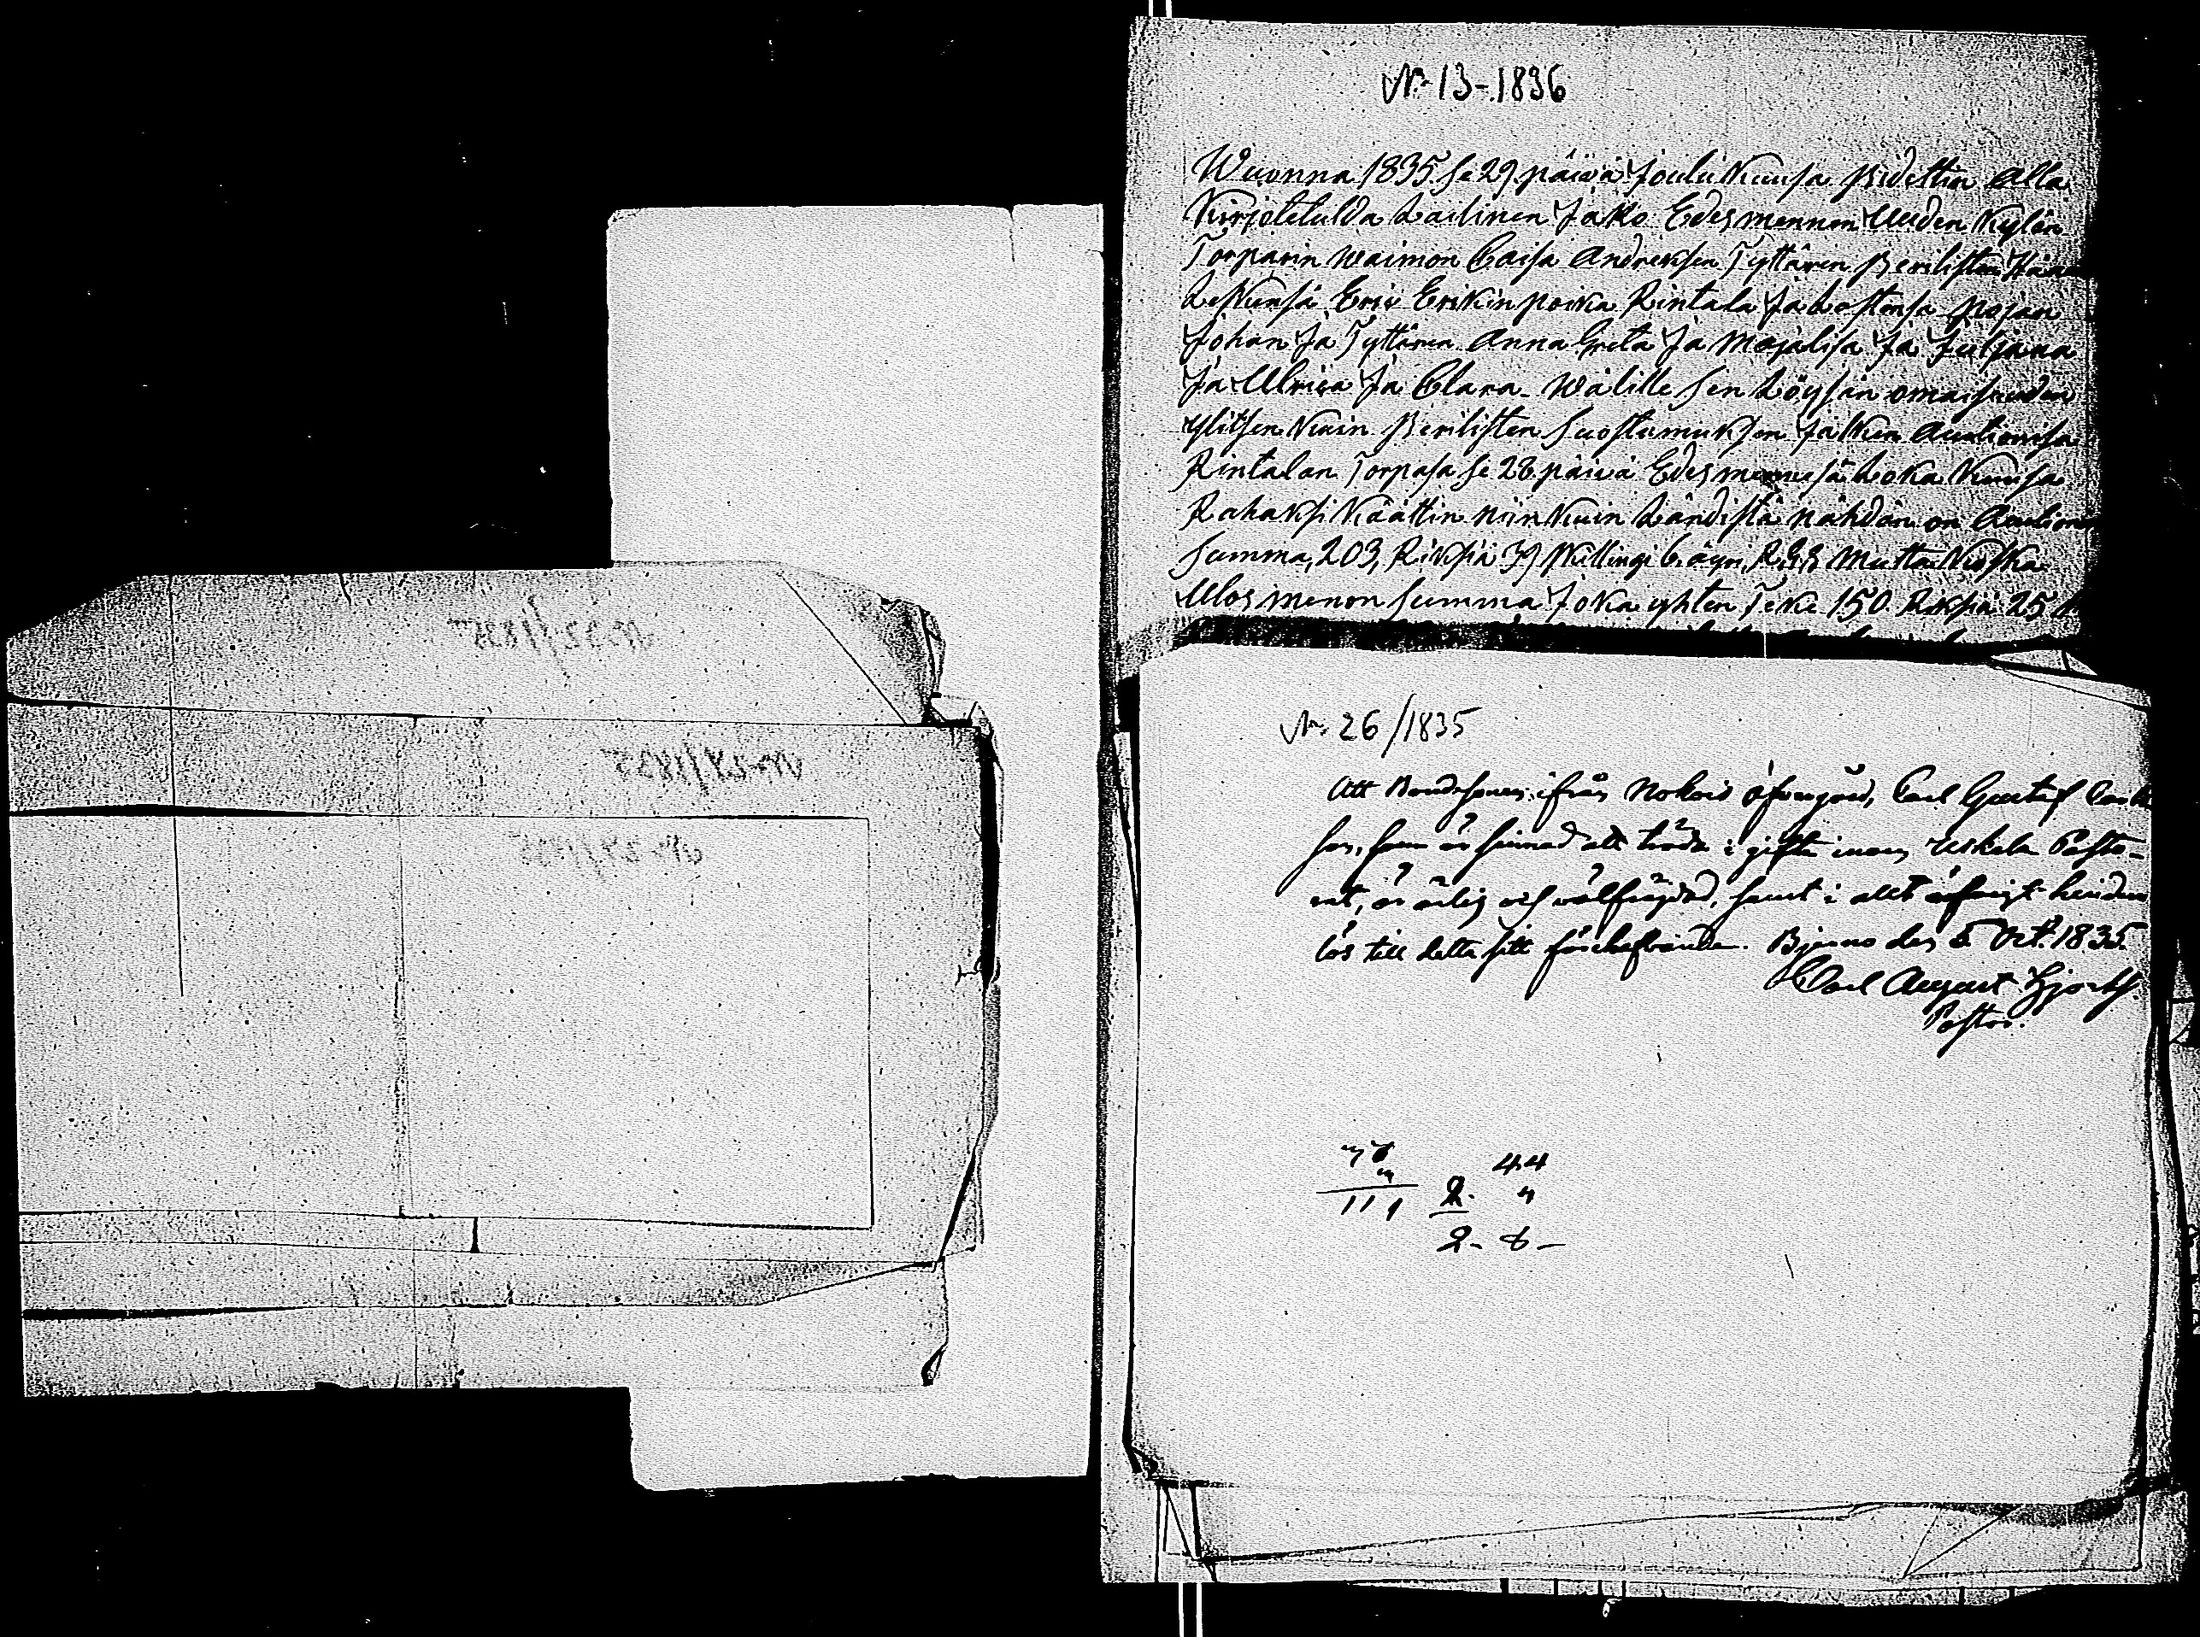 N:o 13-1836
Wuonna 1835 se 29 päivä Joulu Kuusa Pidettin alla
Kirjoitetulda Lailinen Jako Edesmennen Uuden Kylän
Torparin waimon Caisa Andreksen Tyttären Perilisten
Leskensä Eric Erikin poika Rintala Ja Lastensa Pojan
Johan Ja Tyttären Anna Greta Ja Majalisa Ja Juljana
Ja Ulrica Ja Clara wälille sen Löysän omaisuuden
ylitsen Kuin Perilisten Suostumuksen Jälken Auctionisa
Rintalan Torpasa se 28 päivä Edesmennesä Loka Kuusa
Rahaksi Käättin niin Kuin Ländistä nähdän on Auction
Summa, 203, Riksiä 39 Killingi 6 äyri, R:G:S Mutta Koska
Ulos menon Summa Joka yhten Teke 150 Riksiä 25
N:o 26/1835
Att Bondesonen ifrån Nokois Carl Gustaf
son, som är sinnad att träda i gifte inom Uskela Pasto-
rat, är ärlig och välfrägdad, samt i allt öfrigt hinders
lös till detta sitt förehafvande. Bjerno den 5 Oct. 1835.
Carl August Hjorth
Pastor.
111 2. 44
2. 8 -
N:o 32/1835
N:o 28/1835
N:o 27/1835